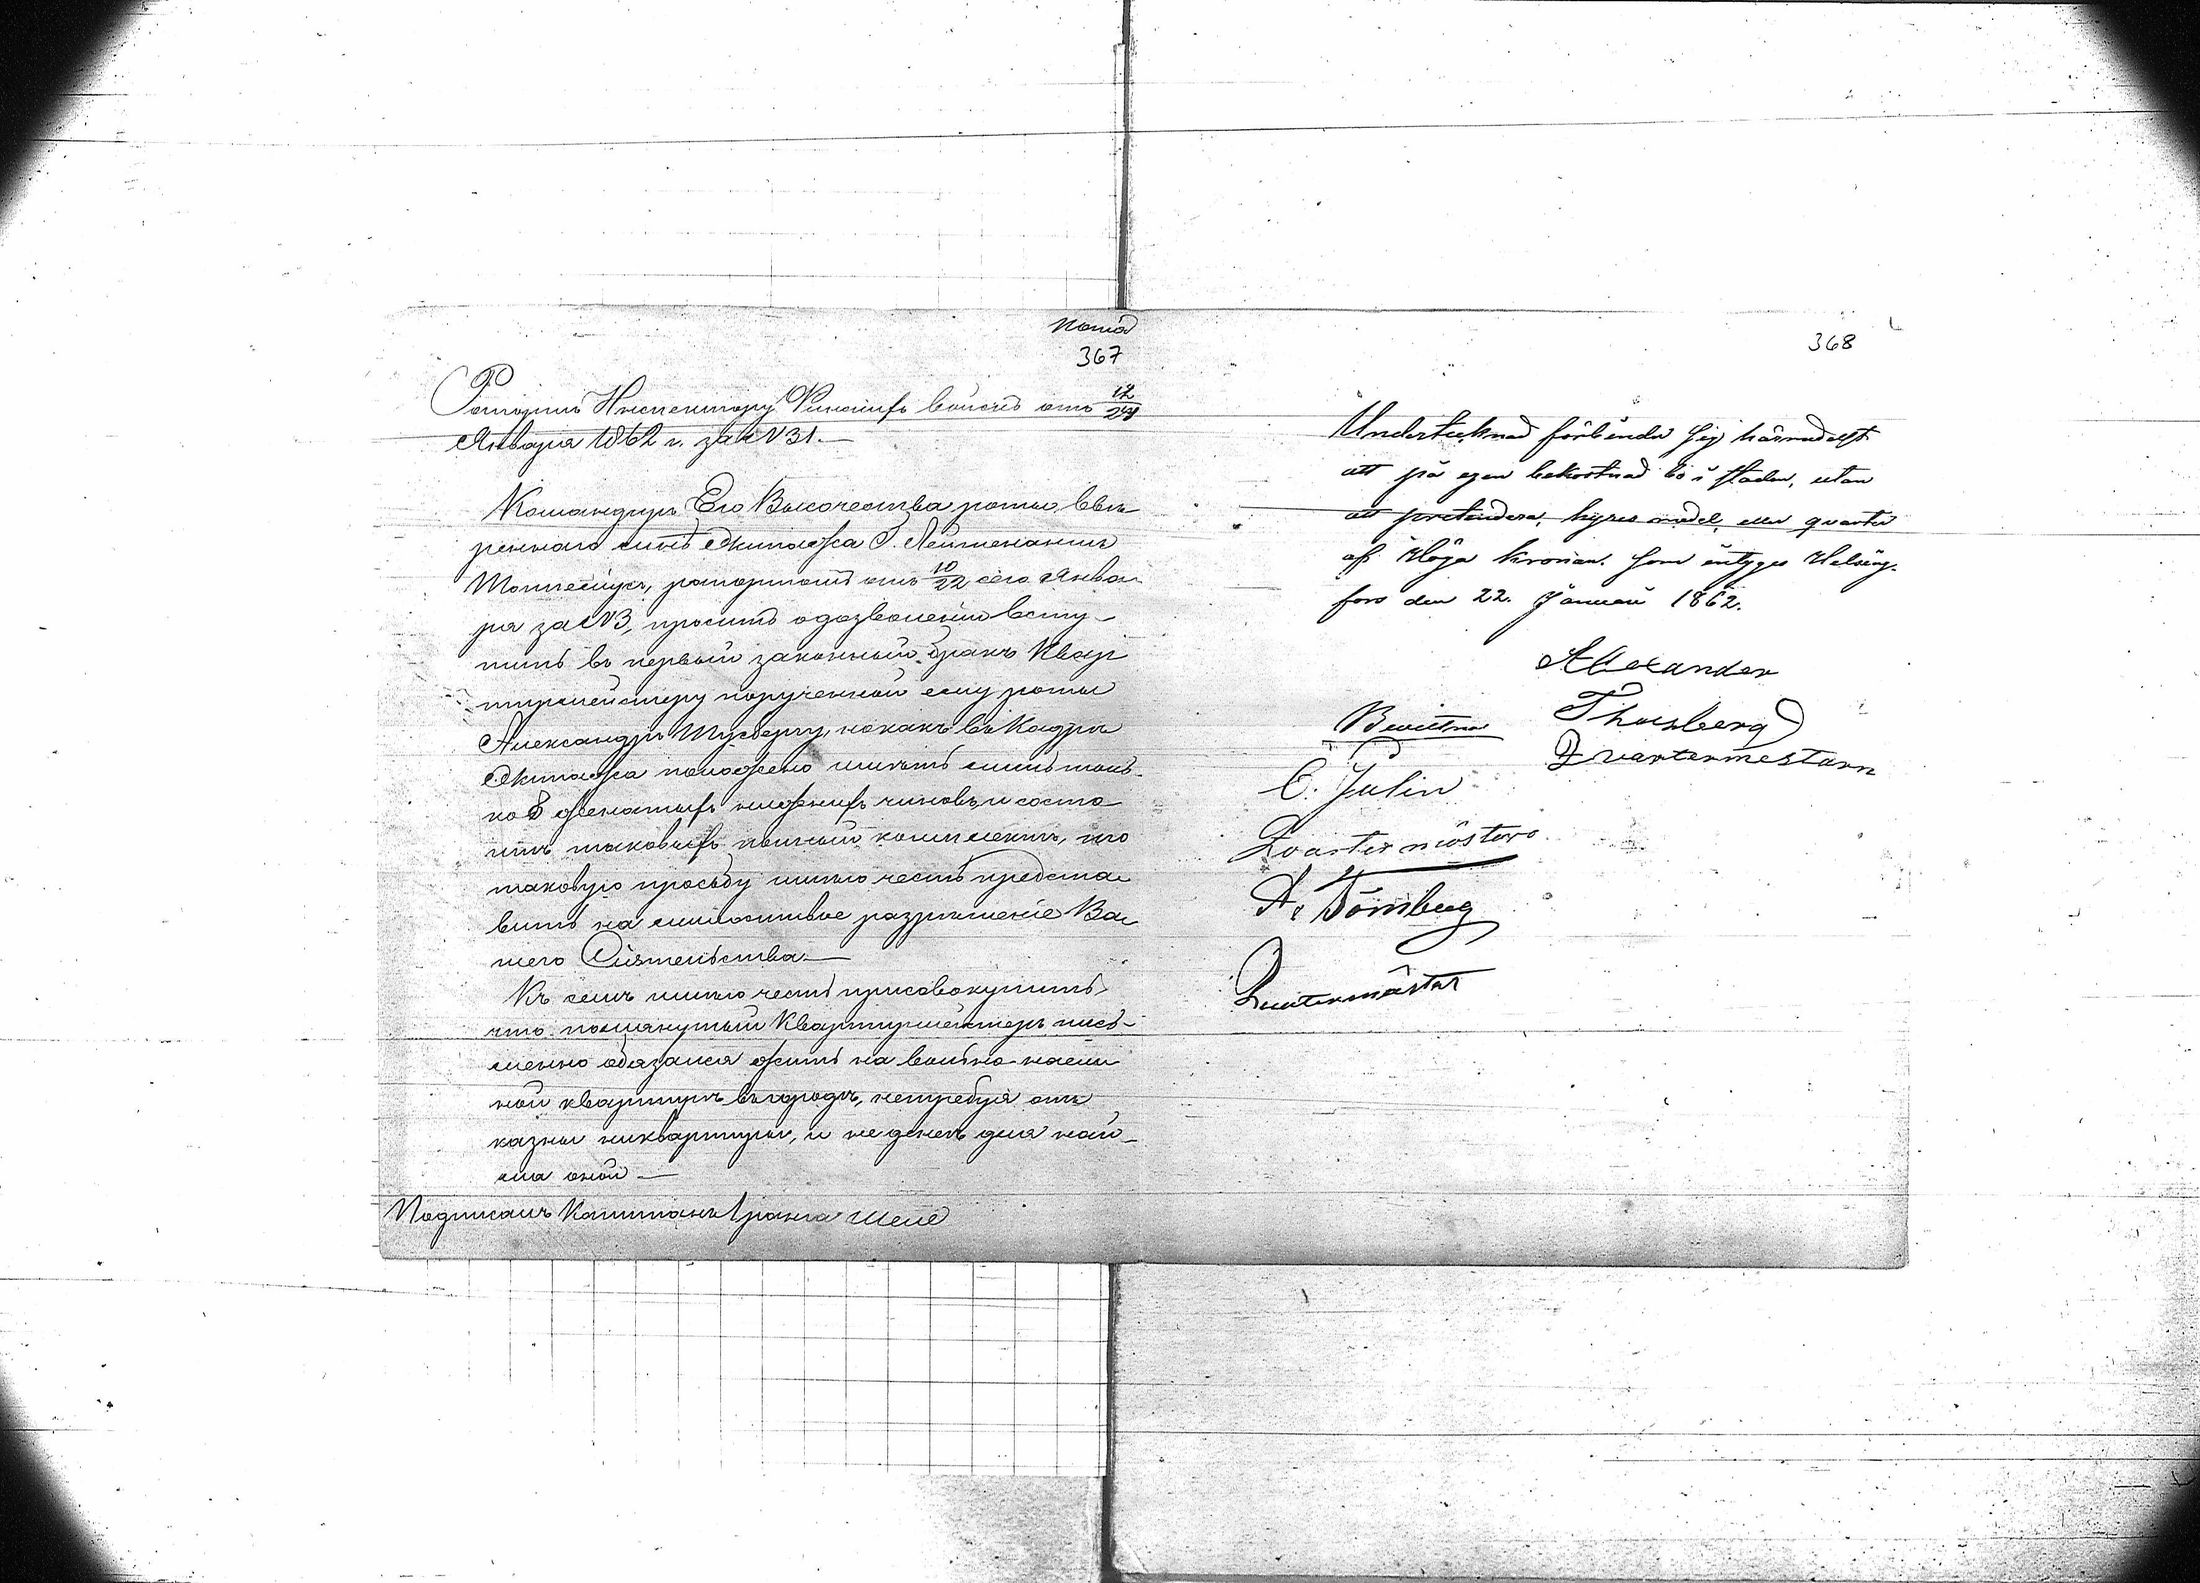 копія
367
Рапортъ Инспектору Финскихъ войскъ отъ 12/24
Января 1862 г. за №31.—
Командиръ Его Высочества роты ввѣ-
реннаго мнѣ Экипажа Г. Лейтенантъ
рапортомъ отъ 10/22 сего Янва-
ря за №3, проситъ о дозволеніи всту-
пить въ первый законный бракъ Квар
тирмейстеру порученной ему роты
Александру Тусбергу, но какъ въ Кадрѣ
Экипажа положено имѣть лишь толь-
ко 8 женатыхъ нижнихъ чиновъ и состо
итъ таковыхъ полный комплектъ, то
таковую просьбу имѣю честь предста-
вить на милостивое разрѣшеніе Ва-
шего Сіятельства.—
Къ сему имѣю честь присовокупить,
что помянутый Квартирмейстеръ пись-
менно обязался жить на вольно наем
ной квартирѣ въ городѣ, нетребуя отъ
казны никвартиры, и не денегъ для най-
ма оной —
Подписалъ Капитанъ 1 ранга Шеле
368
Undertecknad förbinder sig härmedelst
att på egen bekostnad bo i staden, utan
att pretendera, hyres medel, eller quarter
af Höga Kronan. som intyges Helsing-
fors den 22. Januari 1862.
Alexander
Thusberg
Qvartermestarn
Bevittna
C. Julin
Qvartermästare
A. Törnberg
Quatermästar